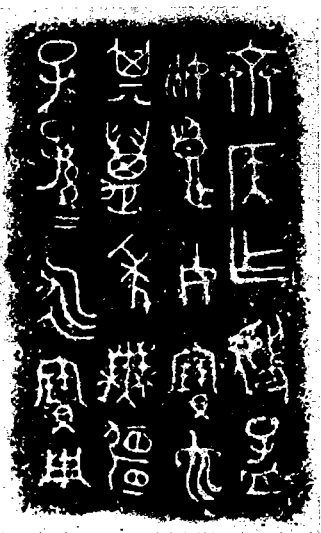 齊侯乍虢孟
姬良女寶它
其萬年無疆
子孫＝永寶用